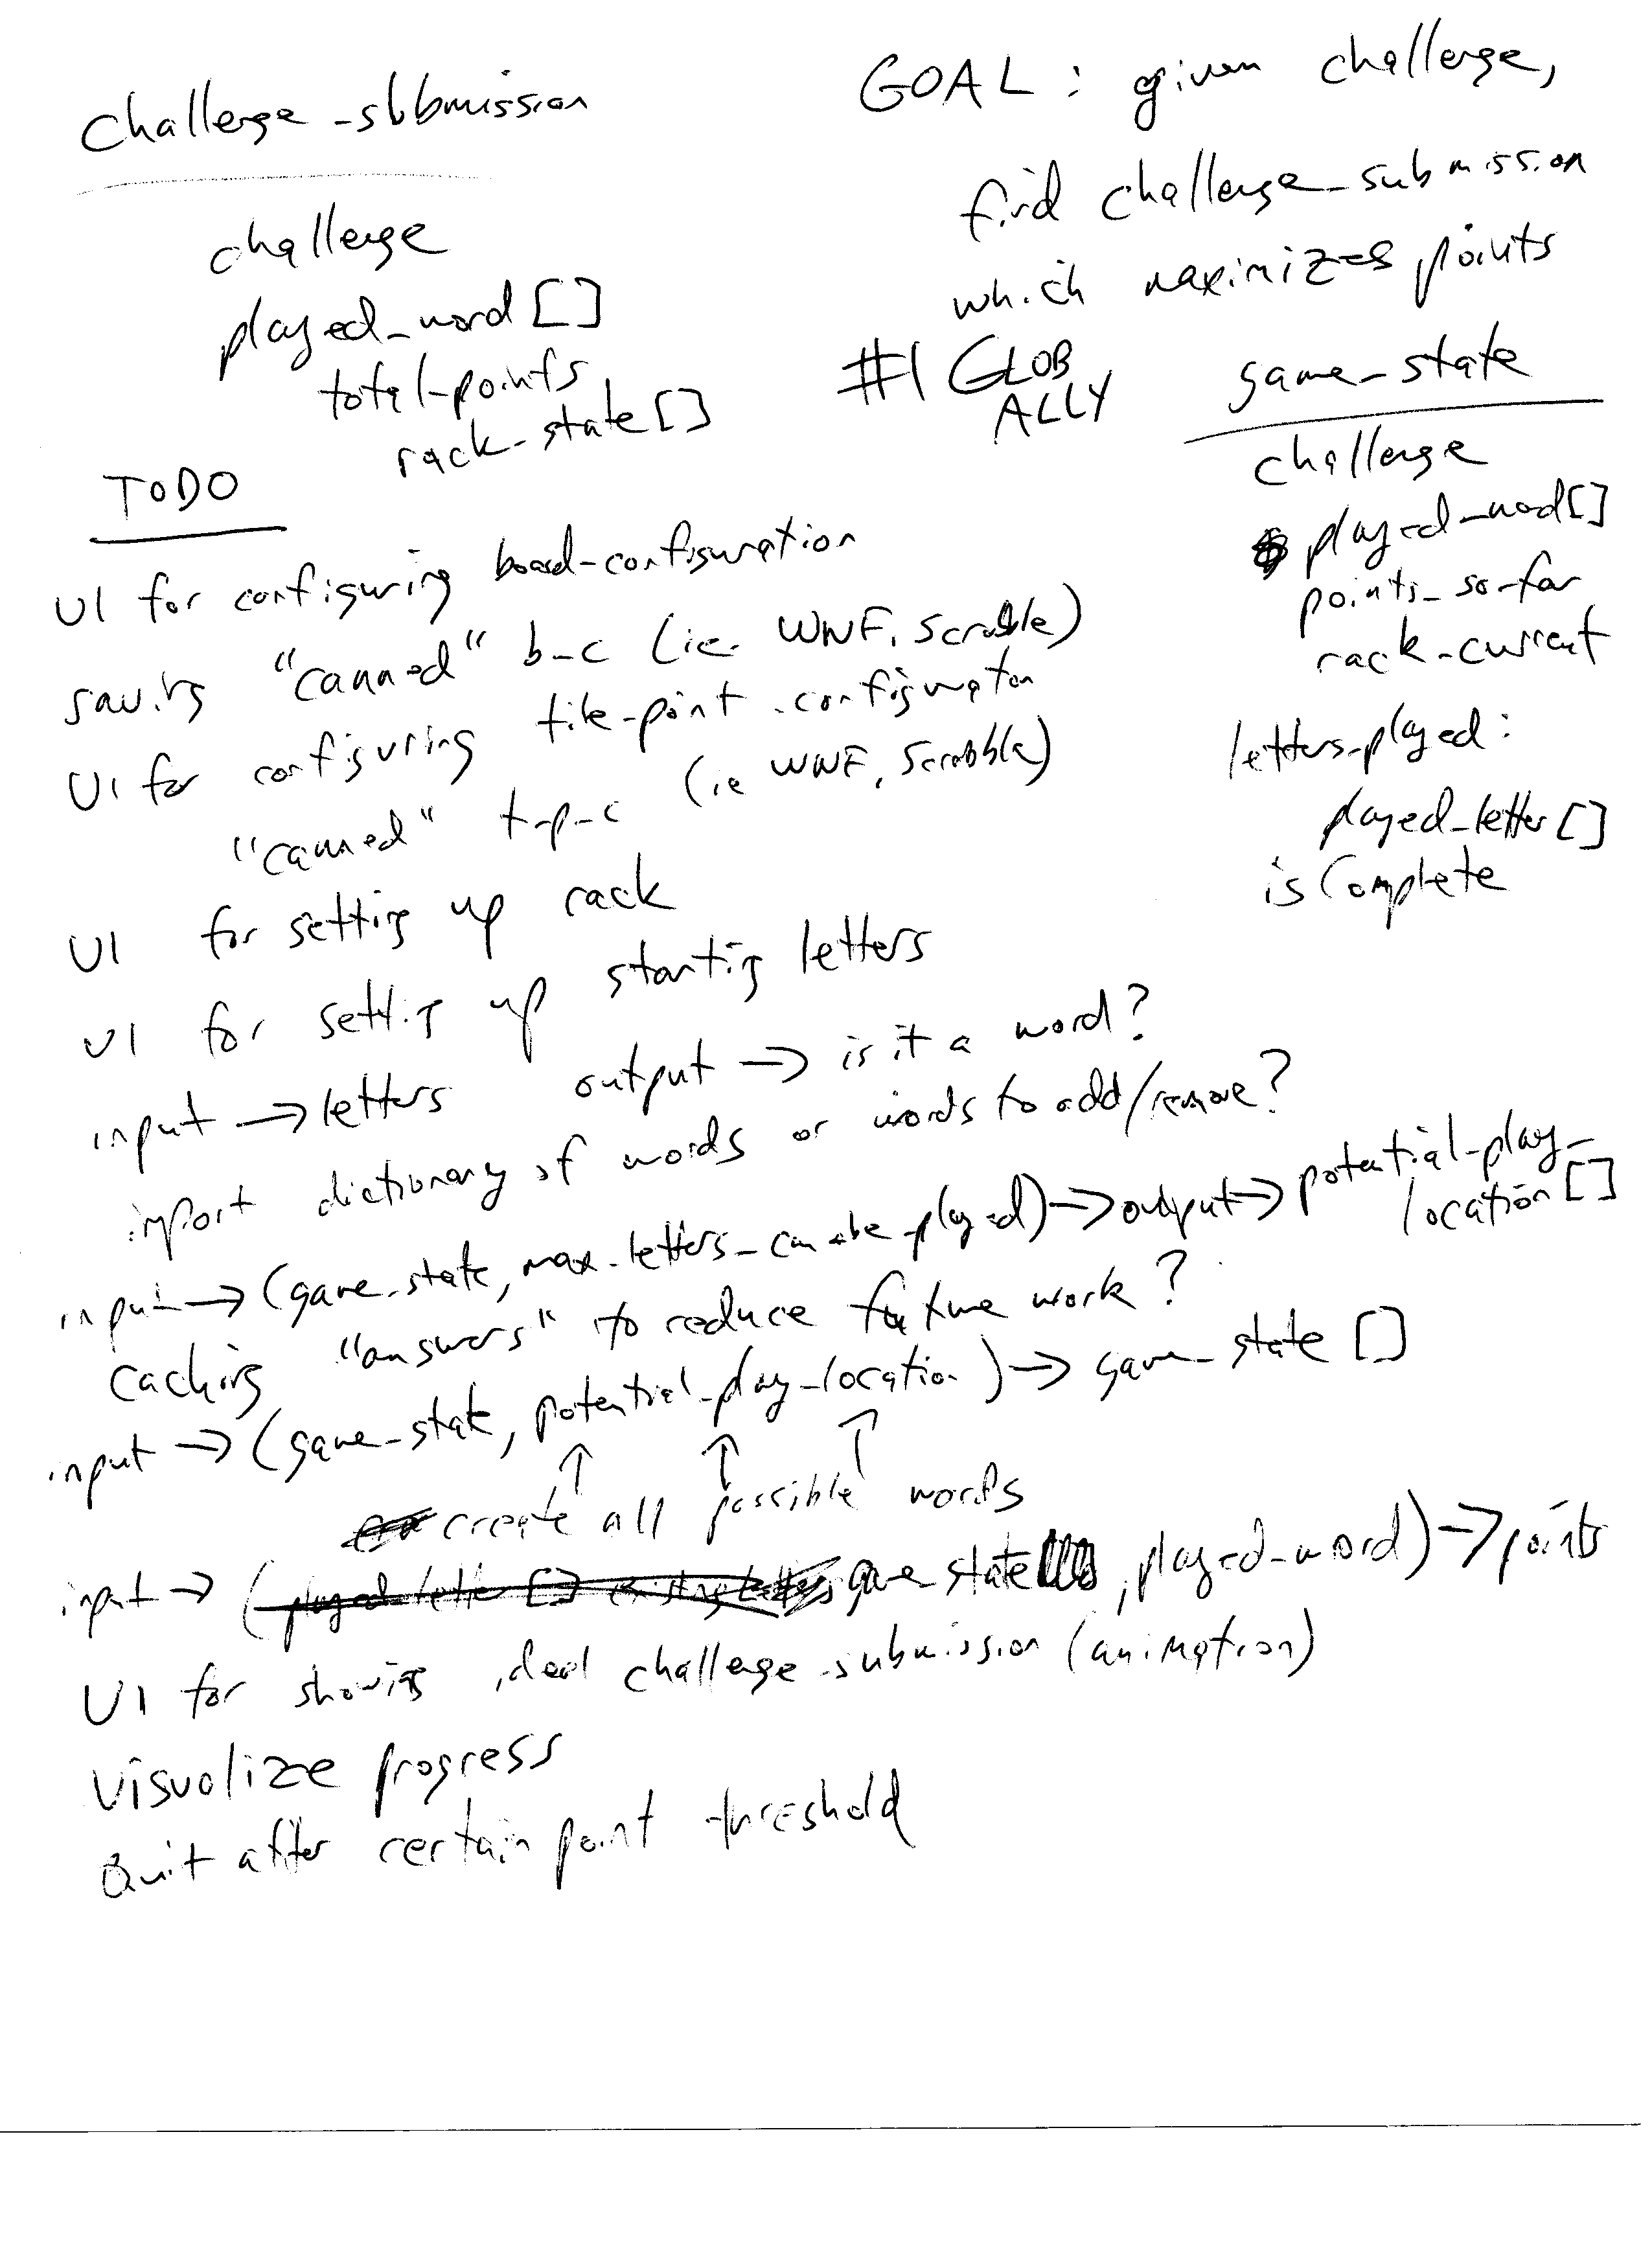 challenge_submission
challenge
played_word []
total_points
rack_state []
GOAL: given challenge,
find challenge_submission
which maximizes points
#1 GLOB
ALLY
game_state
challenge
played_word []
points_so_far
rack_current
letters_played:
played_letter []
isComplete
TODO
UI for configuring board-configuration
saving "canned" b-c (ie. WWF, Scrabble)
UI for configuring tile-point-configuration
"canned" t-p-c (ie WWF, Scrabble)
UI for setting up rack
UI for setting up starting letters
input → letters output → is it a word?
import dictionary of words or words to add/remove?
input → (game_state, max_letters_can_be_played) → output → potential_play_
location []
caching "answers" to reduce future work?
input → (game_state, potential_play_location) → game_state []
↑ ↑ ↑
create all possible words
input → (played_letter [] existing letters game_state, played_word) → points
UI for showing ideal challenge_submission (animation)
Visualize progress
Quit after certain point threshold